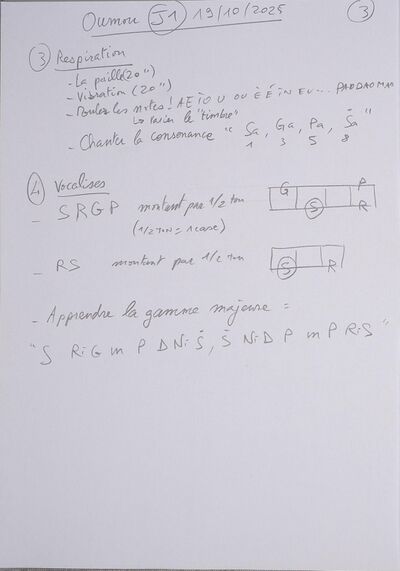 Oumou J1 19/10/2025 3
3 Respiration
- La paille (20")
- Vibration (20")
- Rouler les notes! A E I O U OU È É IN EU...
↳ varier le "timbre"
- Chanter la consonance " Sa, Ga, Pa, Ṡa "
1 3 5 8
4 Vocalises
- S R G P montent par 1/2 ton
(1/2 ton = 1 case)
G P
S R
- RS montent par 1/2 ton
S R
- Apprendre la gamme majeure =
" S Ri G m P D Ni Ṡ, Ṡ Ni D P m P Ri S "